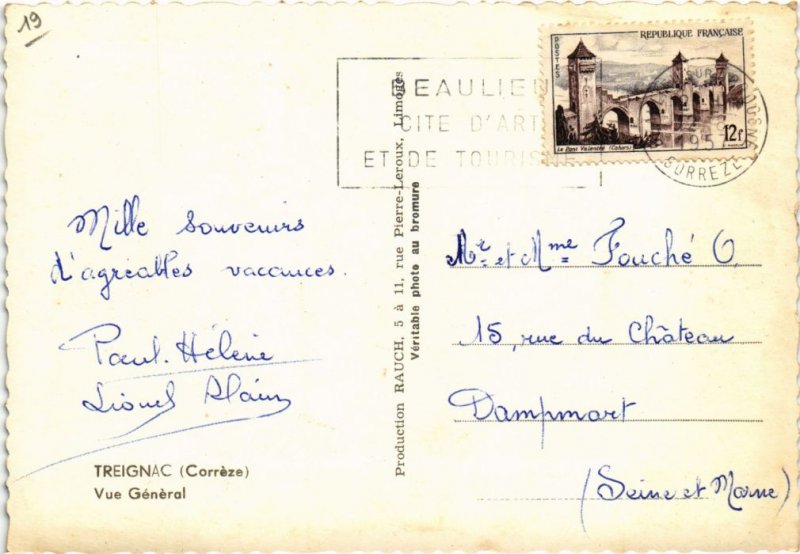 19
REPUBLIQUE FRANÇAISE
POSTES
Le Pont Valentré (Cahors)
12F
BEAULIEU
CITE D'ART
ET DE TOURISME
SUR
CORREZE
Mille souvenirs
d'agréables vacances.
Paul. Hélène
Lionel Alain
TREIGNAC (Corrèze)
Vue Génèral
Production RAUCH, 5 à 11, rue Pierre-Leroux, Limoges
Véritable photo au bromure
Mr et Mme Fouché O.
15, rue du Château
Dampmart
(Seine et Marne)